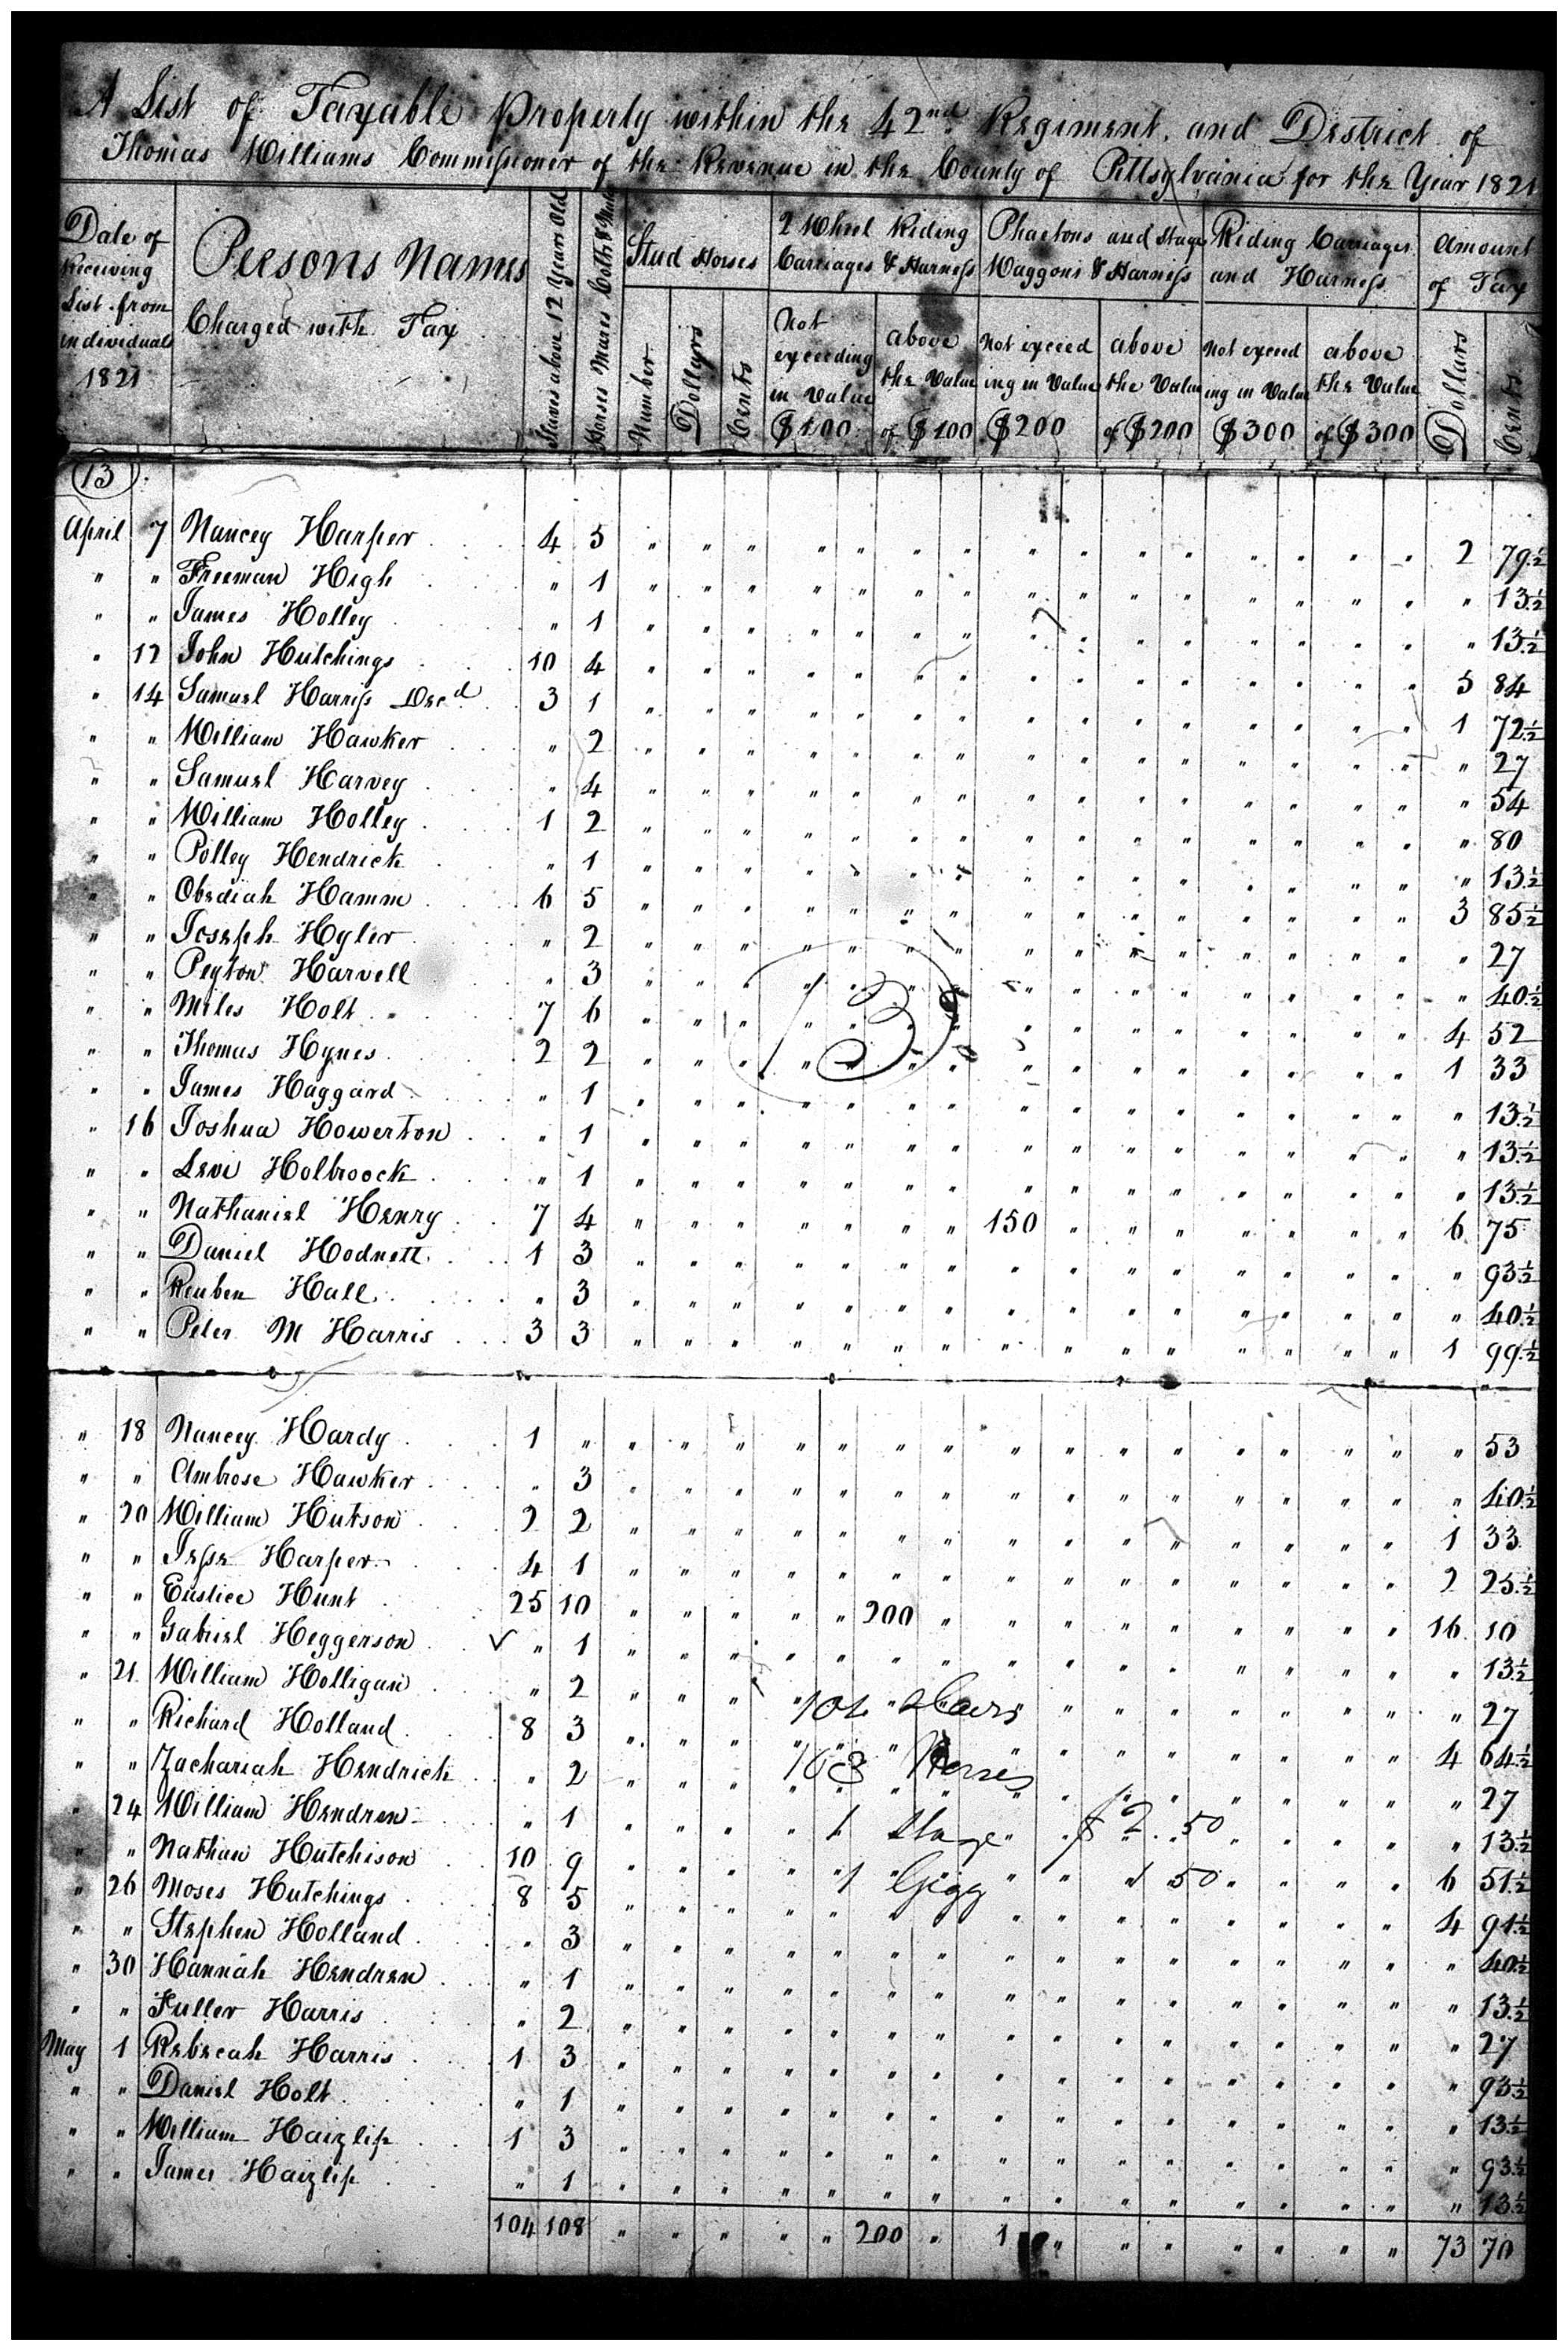 A List of Taxable Property within the 42nd Regiment, and District of
Thomas Williams Commissioner of the Revenue in the County of Pittsylvania for the Year 1821
Date of Receiving List from individuals 1821
Persons Names Charged with Tax
Slaves above 12 Years Old
Horses Mares Colts & Mules
Stud Horses
Number
Dollars
Cents
2 Wheel Riding Carriages & Harness
Not exceeding in Value $100
above the Value of $100
Phaetons and Stage Waggons & Harness
Not exceeding in Value $200
above the Value of $200
Riding Carriages and Harness
Not exceeding in Value $300
above the Value of $300
Amount of Tax
Dollars
Cents
13
April 7 Nancey Harper 4 5 " " " " " " " " " " " " " " " 2 79½
" " Freeman High " 1 " " " " " " " " " " " " " " " " 13½
" " James Holley " 1 " " " " " " " " " " " " " " " " 13½
" 12 John Hutchings 10 4 " " " " " " " " " " " " " " " 5 84
" 14 Samuel Harriss Decd 3 1 " " " " " " " " " " " " " " " 1 72½
" " William Hawker " 2 " " " " " " " " " " " " " " " " 27
" " Samuel Harvey " 4 " " " " " " " " " " " " " " " " 54
" " William Holley 1 2 " " " " " " " " " " " " " " " " 80
" " Polley Hendrick " 1 " " " " " " " " " " " " " " " " 13½
" " Obediah Hamm 6 5 " " " " " " " " " " " " " " " 3 85½
" " Joseph Hyler " 2 " " " " " " " " " " " " " " " " 27
" " Peyton Harvell " 3 " " " " " " " " " " " " " " " " 40½
" " Miles Holt 7 6 " " " " " " " " " " " " " " " 4 52
13
" " Thomas Hynes 2 2 " " " " " " " " " " " " " " " 1 33
" " James Haggard " 1 " " " " " " " " " " " " " " " " 13½
" 16 Joshua Howerton " 1 " " " " " " " " " " " " " " " " 13½
" " Levi Holbroock " 1 " " " " " " " " " " " " " " " " 13½
" " Nathaniel Henry 7 4 " " " " " " " 150 " " " " " " " 6 75
" " Daniel Hodnett 1 3 " " " " " " " " " " " " " " " " 93½
" " Reuben Hall " 3 " " " " " " " " " " " " " " " " 40½
" " Peter M Harris 3 3 " " " " " " " " " " " " " " " 1 99½
" 18 Nancey Hardy 1 " " " " " " " " " " " " " " " " " 53
" " Ambrose Hawker " 3 " " " " " " " " " " " " " " " " 40½
" 20 William Hutson 2 2 " " " " " " " " " " " " " " " 1 33
" " Jesse Harper 4 1 " " " " " " " " " " " " " " " 2 25½
" " Eustice Hunt 25 10 " " " " " 200 " " " " " " " " " 16 10
" " Gabriel Heggerson ✓ " 1 " " " " " " " " " " " " " " " " 13½
" 21 William Holligan " 2 " " " " " " " " " " " " " " " " 27
104 Slaves
" " Richard Holland 8 3 " " " " " " " " " " " " " " " 4 64½
108 Horses
" " Zachariah Hendrick " 2 " " " " " " " " " " " " " " " " 27
" 24 William Hendren " 1 " " " " " " " " " " " " " " " " 13½
1 Stage $ 2.50
" " Nathan Hutchison 10 9 " " " " " " " " " " " " " " " 6 51½
1 Gigg 1 50
" 26 Moses Hutchings 8 5 " " " " " " " " " " " " " " " 4 91½
" " Stephen Holland " 3 " " " " " " " " " " " " " " " " 40½
" 30 Hannah Hendren " 1 " " " " " " " " " " " " " " " " 13½
" " Fuller Harris " 2 " " " " " " " " " " " " " " " " 27
May 1 Rebecah Harris 1 3 " " " " " " " " " " " " " " " " 93½
" " Daniel Holt " 1 " " " " " " " " " " " " " " " " 13½
" " William Haizlip 1 3 " " " " " " " " " " " " " " " " 93½
" " James Haizlip " 1 " " " " " " " " " " " " " " " " 13½
104 108 " " " " " 200 " 1 " " " " " " " 73 70